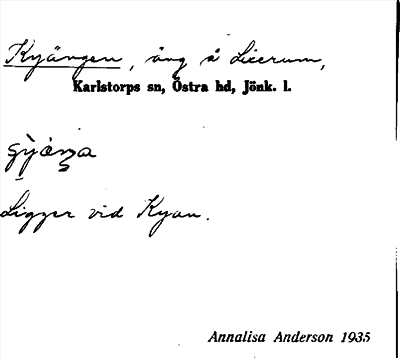 Kyängen, äng å Licerum,
Karlstorps sn, Östra hd, Jönk. l.
Ligger vid Kyan.
Annalisa Anderson 1935